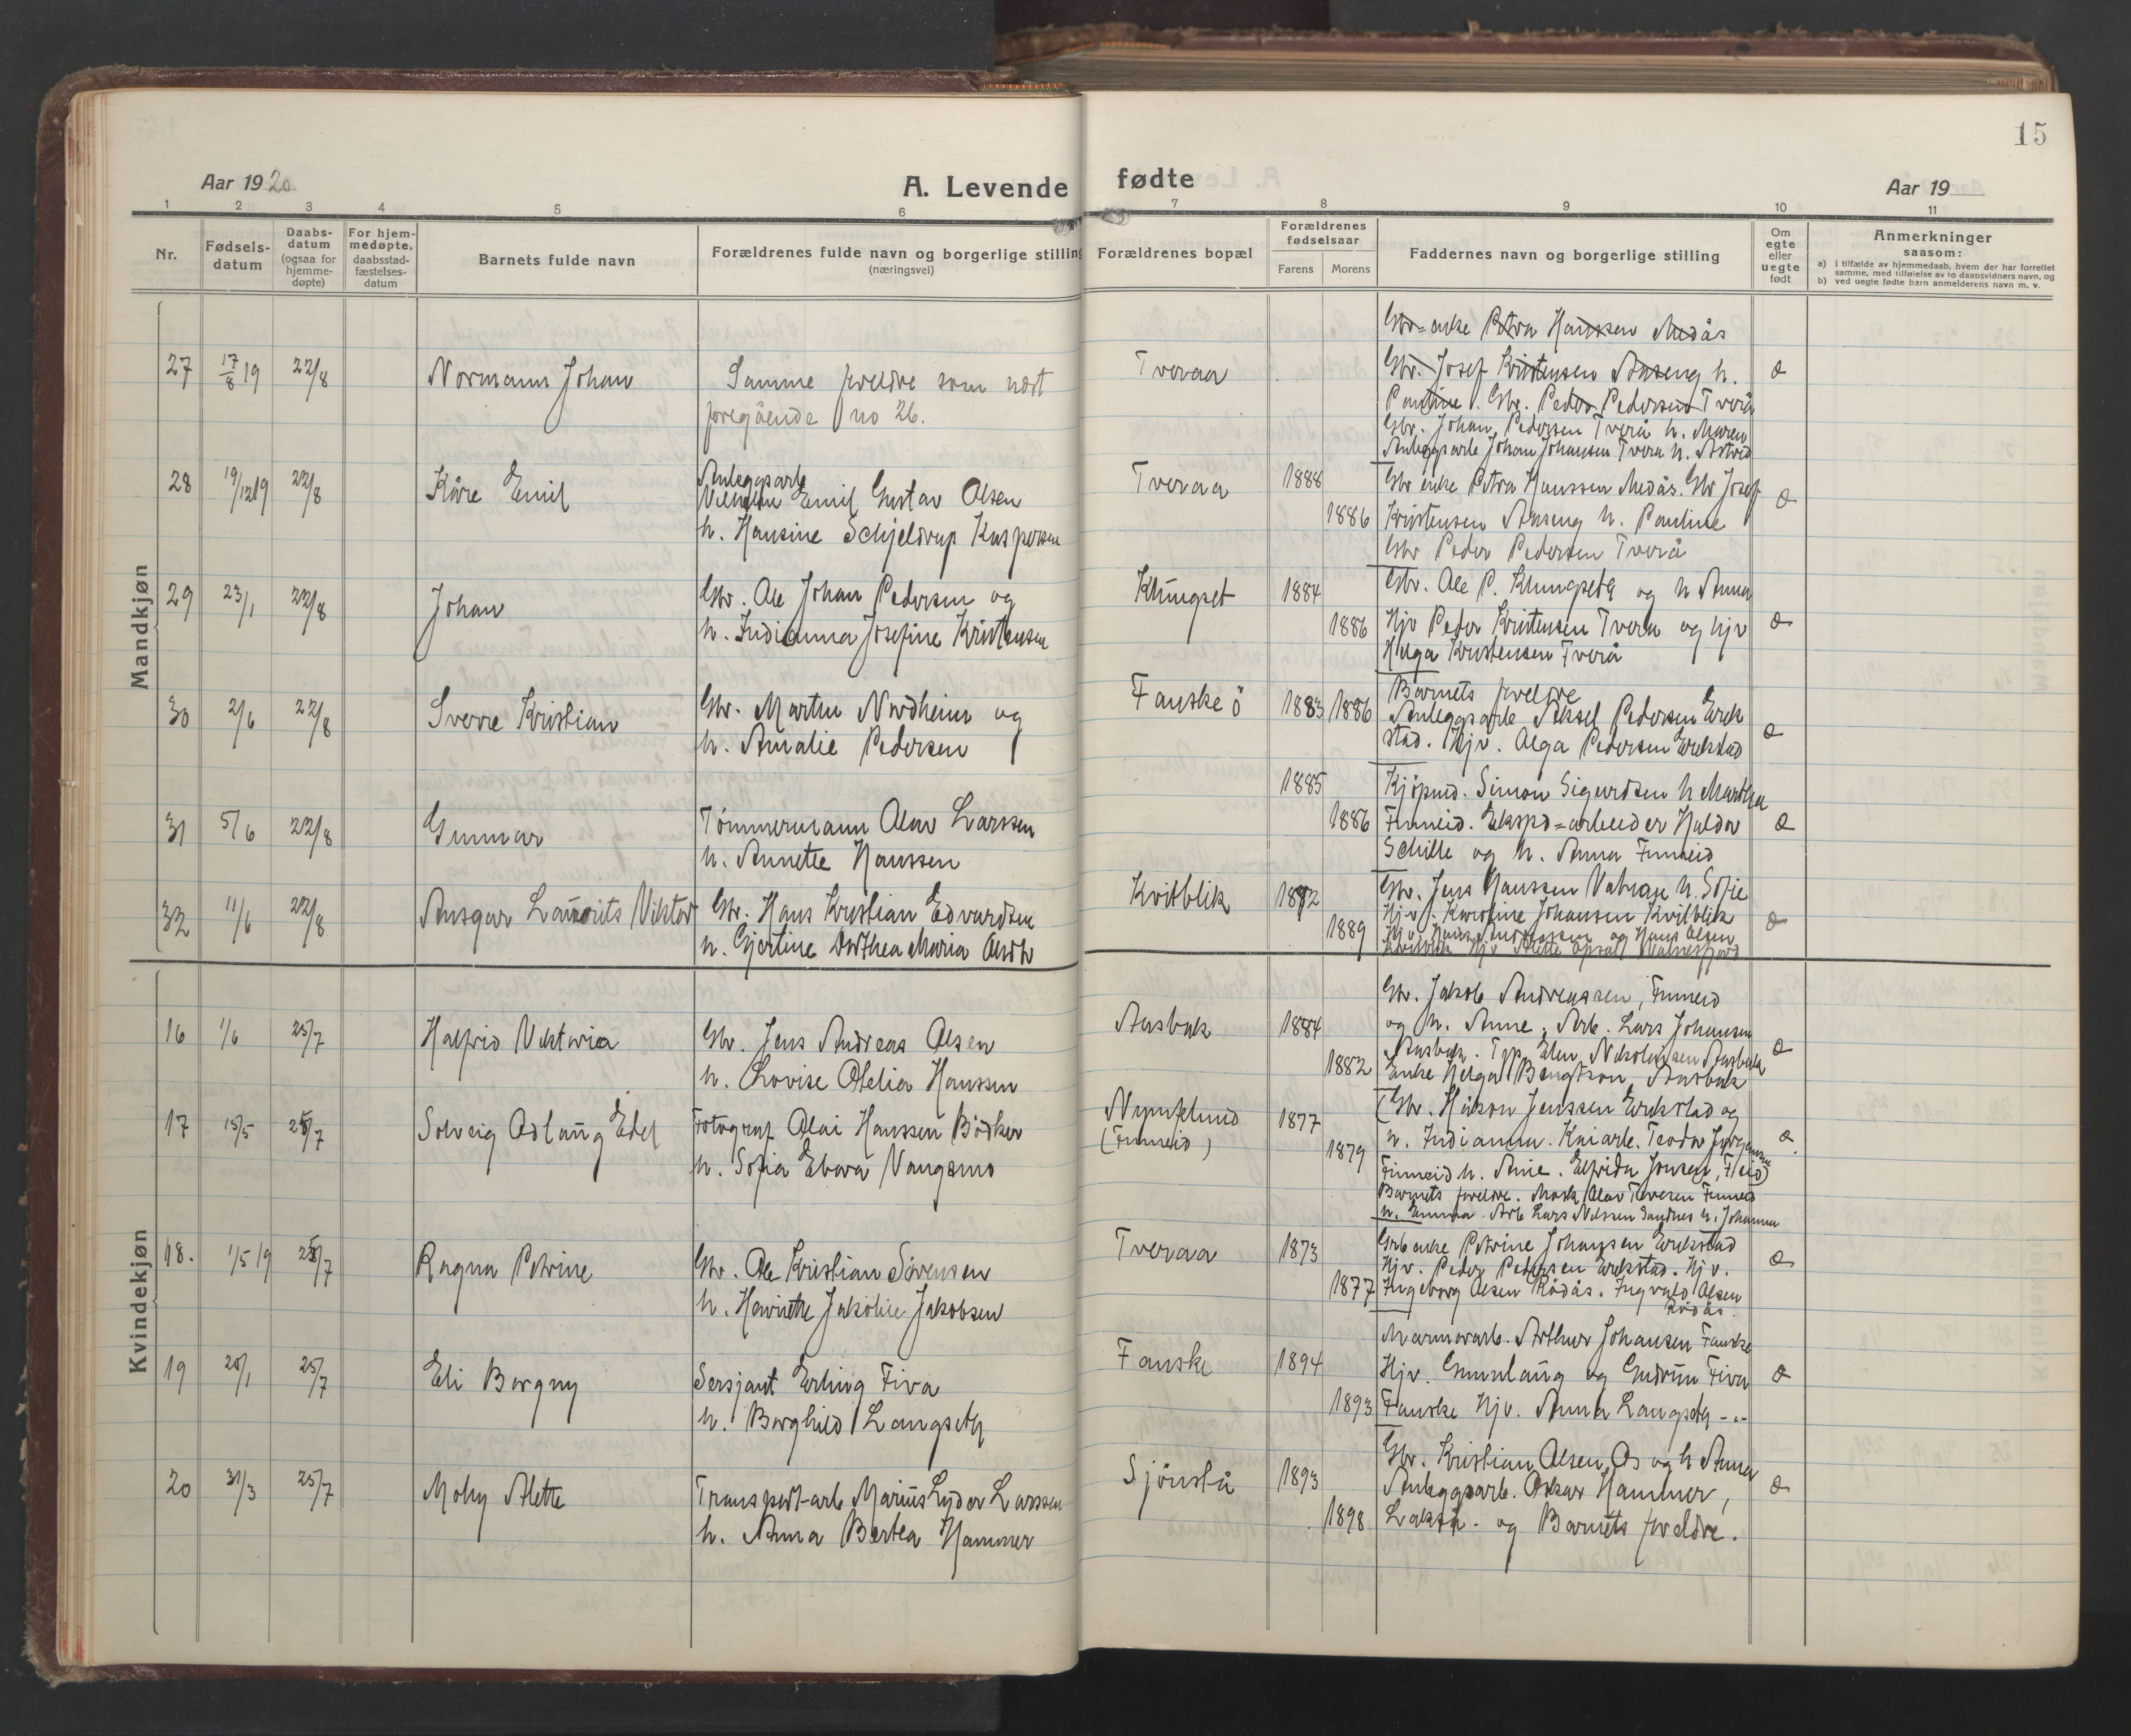 15
Aar 1920
A. Levende fødte
Aar 19
1 2 3 4 5 6 7 8 9 10 11
Nr.
Fødsels-
datum
Daabs-
datum
(ogsaa for
hjemme-
døpte)
For hjem-
medøpte,
daabsstad-
fæstelses-
datum
Barnets fulde navn
Forældrenes fulde navn og borgerlige stilling
(næringsvei)
Forældrenes bopæl
Forældrenes
fødselsaar
Farens Morens
Faddernes navn og borgerlige stilling
Om
egte
eller
uegte
født
Anmerkninger
saasom:
a) i tilfælde av hjemmedaab, hvem der har forrettet
samme, med tilføielse av to daabsvidners navn, og
b) ved uegte fødte barn anmelderens navn m. v.
Mandkjøn
27 17/8 19 22/8 Normann Johan
Samme foreldre som næst
foregående no 26.
Tveraa
Gbr-enke Petra Hanssen Medås
Gbr. Josef Kristensen Aaseng h.
Pauline. Gbr. Peder Pedersen Tverå
Gbr. Johan Pedersen Tverå h. Maren
Anleggsarb Johan Johansen Tvera h. Astrid
28 19/12 19 22/8 Kåre Emil
Anleggsarb
Vilhelm Emil Gustav Olsen
h. Hansine Schjeldrup Kaspersen
Tveraa 1888 1886
Gbr enke Petra Hanssen Medås. Gbr Josef
Kristensen Aaseng h. Pauline
Gbr Peder Pedersen Tverå
29 23/1 22/8 Johan
Gbr. Ole Johan Pedersen og
h. Indianna Josefine Kristensen
Klungset 1884 1886
Gbr. Ole P. Klungseth og h Anna
Hjv Peder Kristensen Tvera og hjv
Helga Kristensen Tverå
30 2/6 22/8 Sverre Kristian
Gbr. Martin Nordheim og
h. Amalie Pedersen
Fauske ö 1883 1886
Barnets foreldre
Anleggsarb Aksel Pedersen Erik
stad. Hjv. Olga Pedersen Erikstad
31 5/6 22/8 Gunnar
Tömmermann Olav Larssen
h. Annette Hanssen
1885 1886
Kjöpmd. Simon Sigurdsen h Martha
Finneid. Ekspd-arbeider Haldor
Schille og h. Anna Finneid
32 11/6 22/8 Ansgar Laurits Viktor
Gbr. Hans Kristian Edvardsen
h. Gjertine Dorthea Maria
Kvitblik 1882 1889
Gbr. Jens Hanssen h. Sofie
Hjv. Karoline Johansen Kvitblik
og Hans Olsen
Kvitblik Hjv Alette Opsal Valnesfjord
Kvindekjøn
16 1/6 25/7 Halfrid Viktoria
Gbr. Jens Andreas Olsen
h. Lovise Otelia Hanssen
Aasbak 1884 1882
Gbr. Jakob Andreassen, Finneid
og h. Anne. Arb. Lars Johansen
Aasbak. Tjp. Elen Nikolaisen Aasbak
Enke Helga Bengtson, Aasbak
17 15/5 25/7 Solveig Odlaug Edel
Fotograf Olai Hanssen Bödker
h. Sofia Ebara Vangsmo
Nymfelund
(Finneid) 1877 1879
(Gbr. Håkon Jenssen Erikstad og
h. Indianna. Kaiarb. Teodor Jörgensen
Finneid h. Anie. Elfrida Jonsen, F)eid)
Barnets foreldre. Mask Olav Tevesen Finneid
h. Emma. Arb Lars Nilssen Sandnes h. Johanna
18. 1/5 19 25/7 Ragna Petrine
Gbr. Ole Kristian Sörensen
h. Henriette Jakobine Jakobsen
Tveraa 1873 1877
Gbr enke Petrine Johansen Erikstad
Hjv. Peder Pedersen Erikstad. Hjv.
Ingeborg Olsen Rödås. Ingvald Olsen
Rödås.
19 20/1 25/7 Eli Borgny
Sersjant Erling Fiva
h. Borghild Langseth
Fauske 1894 1893
Marmorarb. Arthur Johansen Fauske
Hjv. Gunnlaug og Gudrun Fiva
Fauske Hjv. Anna Langseth -"-
20 31/3 25/7 Molly Alette
Transport-arb Marius Lyder Larssen
h. Anna Bertea Hammer
Sjönstå 1893 1898
Gbr. Kristian Olsen Os og h Anna
Anleggsarb. Oskar Hammer,
Lakså. og Barnets foreldre.